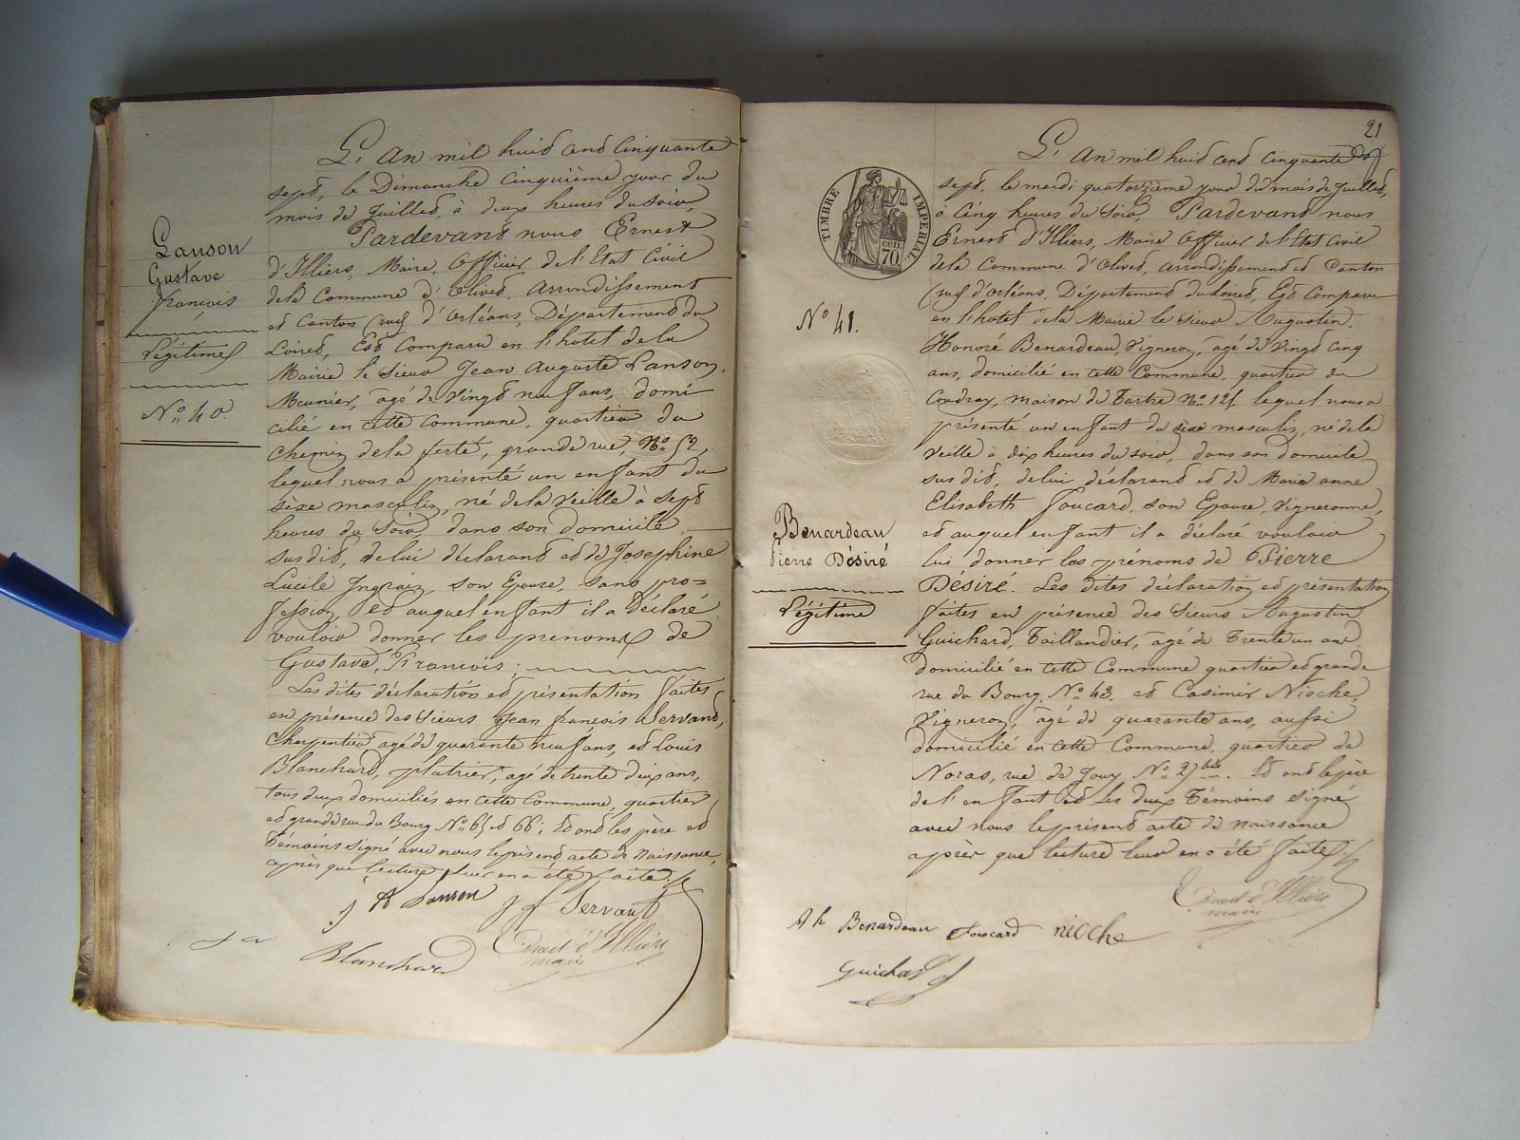 Lanson
Gustave
françois
Légitime
No 40.
L'An mil huit cent Cinquante
sept, le Dimanche Cinquième jour du
mois de Juillet, à deux heures du soir,
Pardevant nous Ernest
d'Illiers, Maire, Officier de l'Etat Civil
de la Commune d'Olivet, arrondissement
et Canton sud d'Orléans, Département du
Loiret, Est Comparu en l'hotel de la
Mairie le Sieur Jean Auguste Lanson,
Meunier, agé de Vingt neuf ans, domi
cilié en cette Commune, quartier du
Chemin de la ferté, grande rue, No 52,
lequel nous a présenté un enfant du
sèxe masculin, né de la Veille à sept
heures du Soir, dans son domicile
susdit, de lui déclarant et de Josephine
Lucile Ingrain, son Epouse, sans pro=
fession et auquel enfant il a déclaré
vouloir donner les prénoms de
Gustave, François;
Les dites déclaration et présentation faites
en présence des Sieurs Jean françois Servant,
Charpentier agé de quarante neuf ans, et Louis
Blanchard, platrier, agé de trente deux ans,
tous deux domiciliés en cette Commune, quartier
et grande rue du Bourg Nos 65 et 66; Et ont les père et
témoins signé avec nous le présent acte de Naissance,
après que lecture leur en a été faite.
J A Lanson
J f Servant
Blanchard
Ernest d'Illiers
maire
21
TIMBRE IMPERIAL
70
No 41.
Benardeau
Pierre Désiré
Légitime
L'An mil huit cent cinquante
sept, le mardi quatorzième jour du mois de Juillet,
à Cinq heures du Soir, Pardevant nous
Ernest d'Illiers, Maire Officier de l'Etat Civil
de la Commune d'Olivet, arrondissement et Canton
sud d'Orléans, Département du Loiret, Est Comparu
en l'hotel de la Mairie le Sieur Augustin
Honoré Benardeau, Vigneron, agé de Vingt cinq
ans, domicilié en cette Commune, quartier du
Coudray, maison de Tartre No 121 lequel nous a
présenté un enfant du sèxe masculin, né de la
Veille à dix heures du soir, dans son domicile
susdit, de lui déclarant et de Marie anne
Elisabeth Foucard, son Epouse, Vigneronne,
et auquel enfant il a déclaré vouloir
lui donner les prénoms de Pierre
Désiré. Les dites déclaration et présentation
faites en présence des Sieurs Augustin
Guichard, Taillandier, agé de Trente un ans
domicilié en cette Commune quartier et grande
rue du Bourg, No 43. et Casimir Nioche,
Vigneron, agé de quarante ans, aussi
domicilié en cette Commune, quartier de
Noras, rue de Jouy No 27 bis. Et ont le père
de l'enfant et les deux Témoins signé
avec nous le présent acte de naissance
après que lecture leur en a été faite
Ernest d'Illiers
maire
A h Benardeau foucard nioche
Guichard